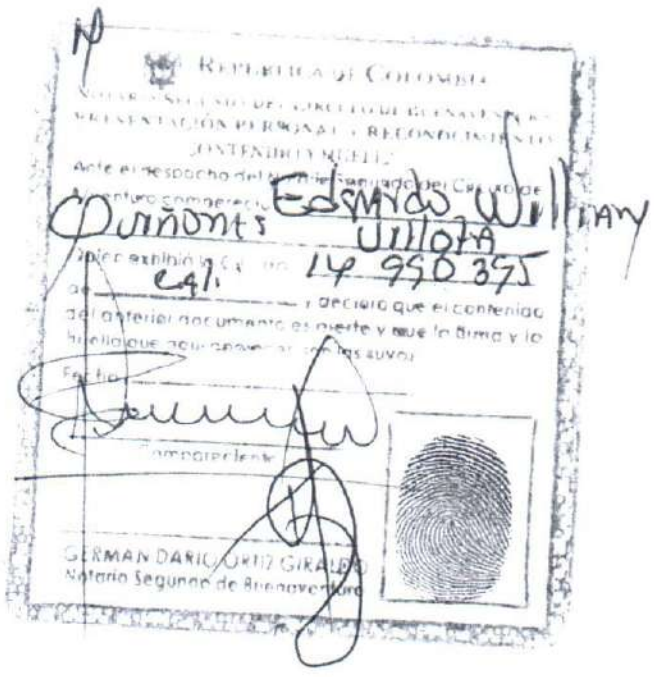 REPUBLICA DE COLOMBIA
NOTARIO SEGUNDO DEL CIRCULO DE BUENAVENTURA
PRESENTACIÓN PERSONAL Y RECONOCIMIENTO
CONTENIDO Y HUELLA
Ante el despacho del Notario Segundo del Circulo de
Buenaventura compareció
Edgardo William
Quiñones Villota
Quien exhibió la C.C. No. 14 990 395
de Cali y declaró que el contenido
del anterior documento es cierto y que la firma y la
huella que aqui aparecen son las suyas
Fecha
Compareciente
GERMAN DARIO ORTIZ GIRALDO
Notario Segundo de Buenaventura